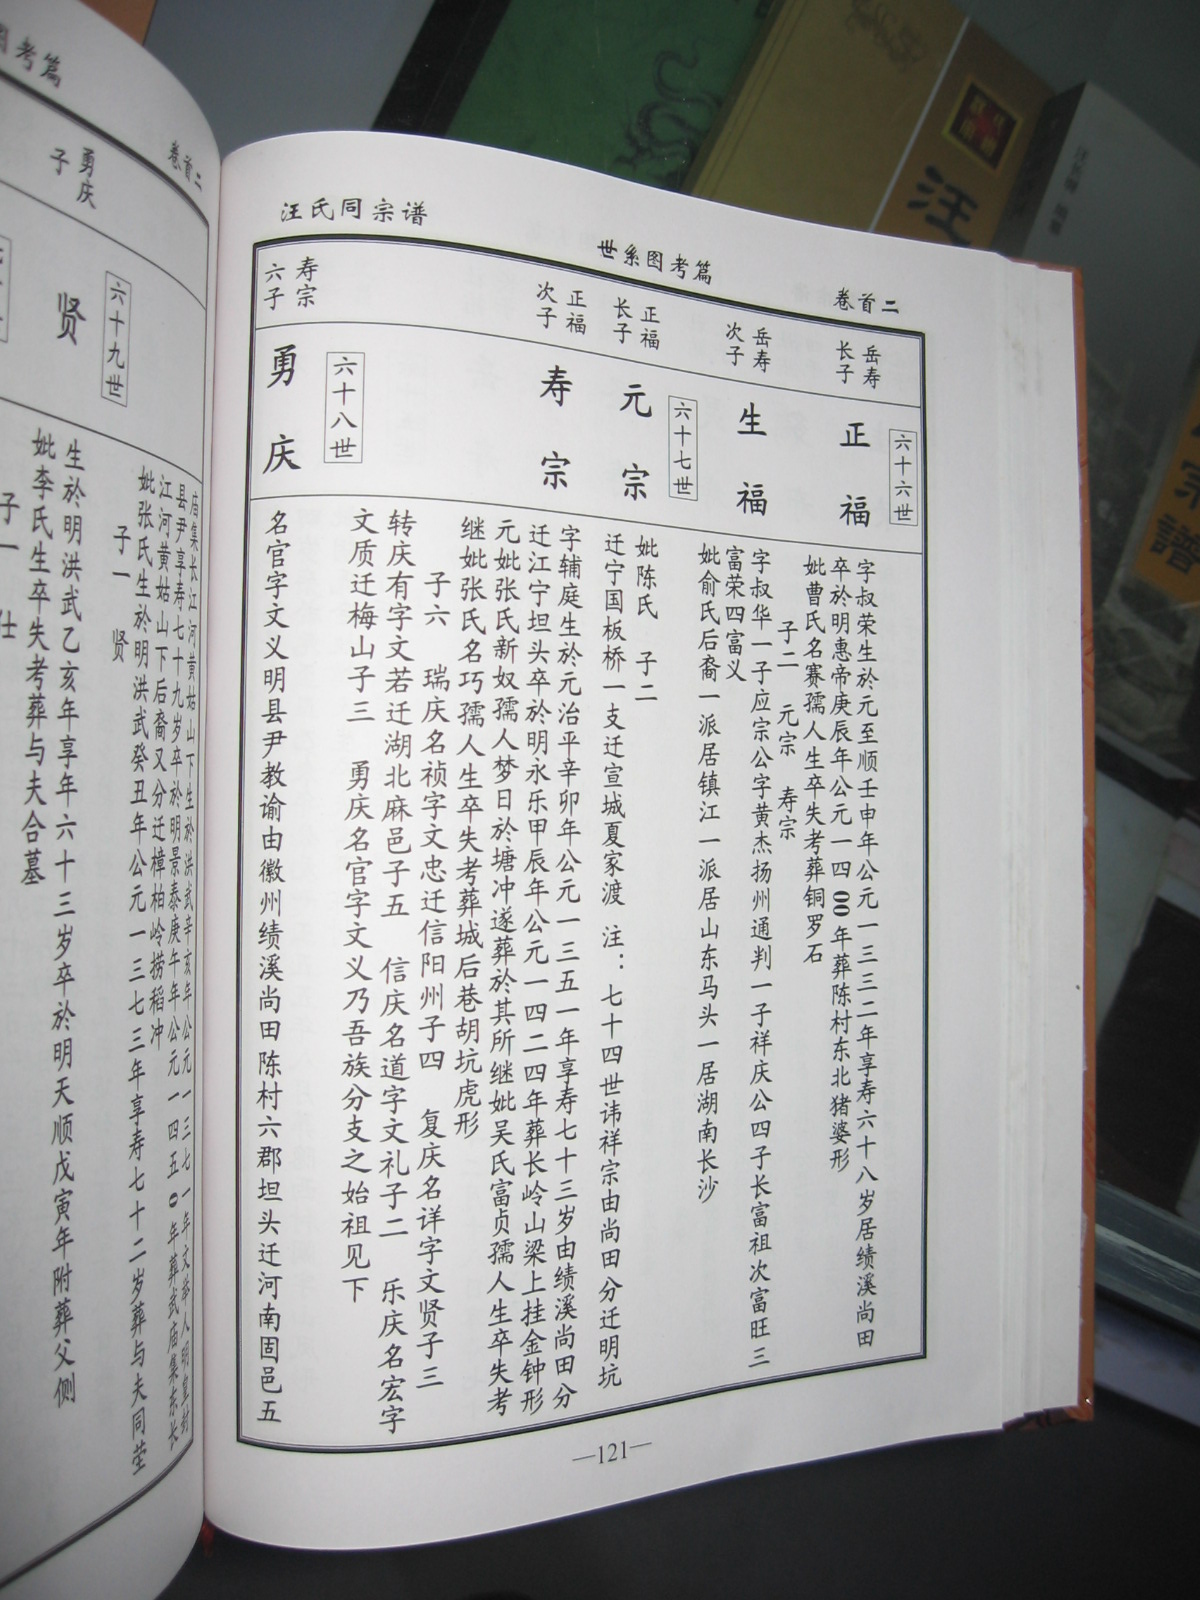 汪氏同宗谱
世系图考篇
卷首二
六十六世
岳寿
长子
正福
字叔荣生於元至顺壬申年公元一三三二年享寿六十八岁居绩溪尚田
卒於明惠帝庚辰年公元一四00年葬陈村东北猪婆形
妣曹氏名赛孺人生卒失考葬铜罗石
子二 元宗 寿宗
岳寿
次子
生福
字叔华一子应宗公字黄杰扬州通判一子祥庆公四子长富祖次富旺三
富荣四富义
妣俞氏后裔一派居镇江一派居山东马头一居湖南长沙
六十七世
正福
长子
元宗
妣陈氏 子二
迁宁国板桥一支迁宣城夏家渡 注：七十四世讳祥宗由尚田分迁明坑
正福
次子
寿宗
字辅庭生於元治平辛卯年公元一三五一年享寿七十三岁由绩溪尚田分
迁江宁坦头卒於明永乐甲辰年公元一四二四年葬长岭山梁上挂金钟形
元妣张氏新奴孺人梦日於塘冲遂葬於其所继妣吴氏富贞孺人生卒失考
继妣张氏名巧孺人生卒失考葬城后巷胡坑虎形
子六 瑞庆名祯字文忠迁信阳州子四 复庆名详字文贤子三
转庆有字文若迁湖北麻邑子五 信庆名道字文礼子二 乐庆名宏字
文质迁梅山子三 勇庆名官字文义乃吾族分支之始祖见下
六十八世
寿宗
六子
勇庆
名官字文义明县尹教谕由徽州绩溪尚田陈村六郡坦头迁河南固邑五
—121—
图考篇
卷首二
庙集长江河黄姑山下生於洪武辛亥年公元一三七一年文举人明皇封
县尹享寿七十九岁卒於明景泰庚午年公元一四五0年葬武庙集东长
江河黄姑山下后裔又分迁樟柏岭捞稻冲
妣张氏生於明洪武癸丑年公元一三七三年享寿七十二岁葬与夫同茔
子一 贤
六十九世
勇庆
子
贤
生於明洪武乙亥年享年六十三岁卒於明天顺戊寅年附葬父侧
妣李氏生卒失考葬与夫合墓
子一 仕
汪
宗譜